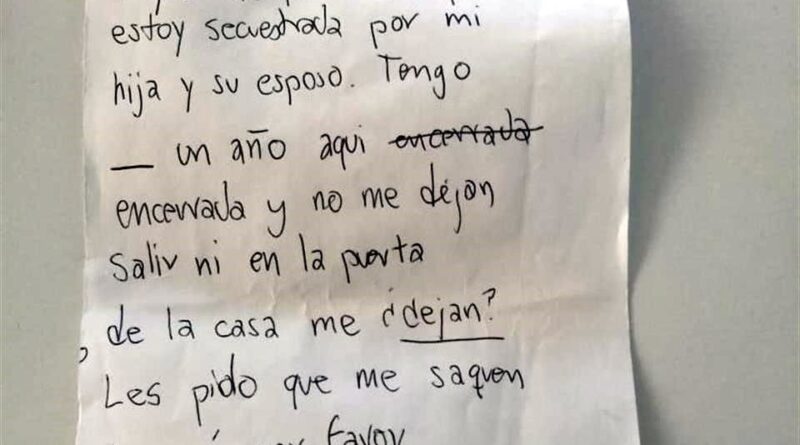 estoy secuestrada por mi
hija y su esposo. Tengo
__ un año aqui encerrada
encerrada y no me déjan
Salir ni en la puerta
, de la casa me ¿dejan?
Les pido que me saquen
favor